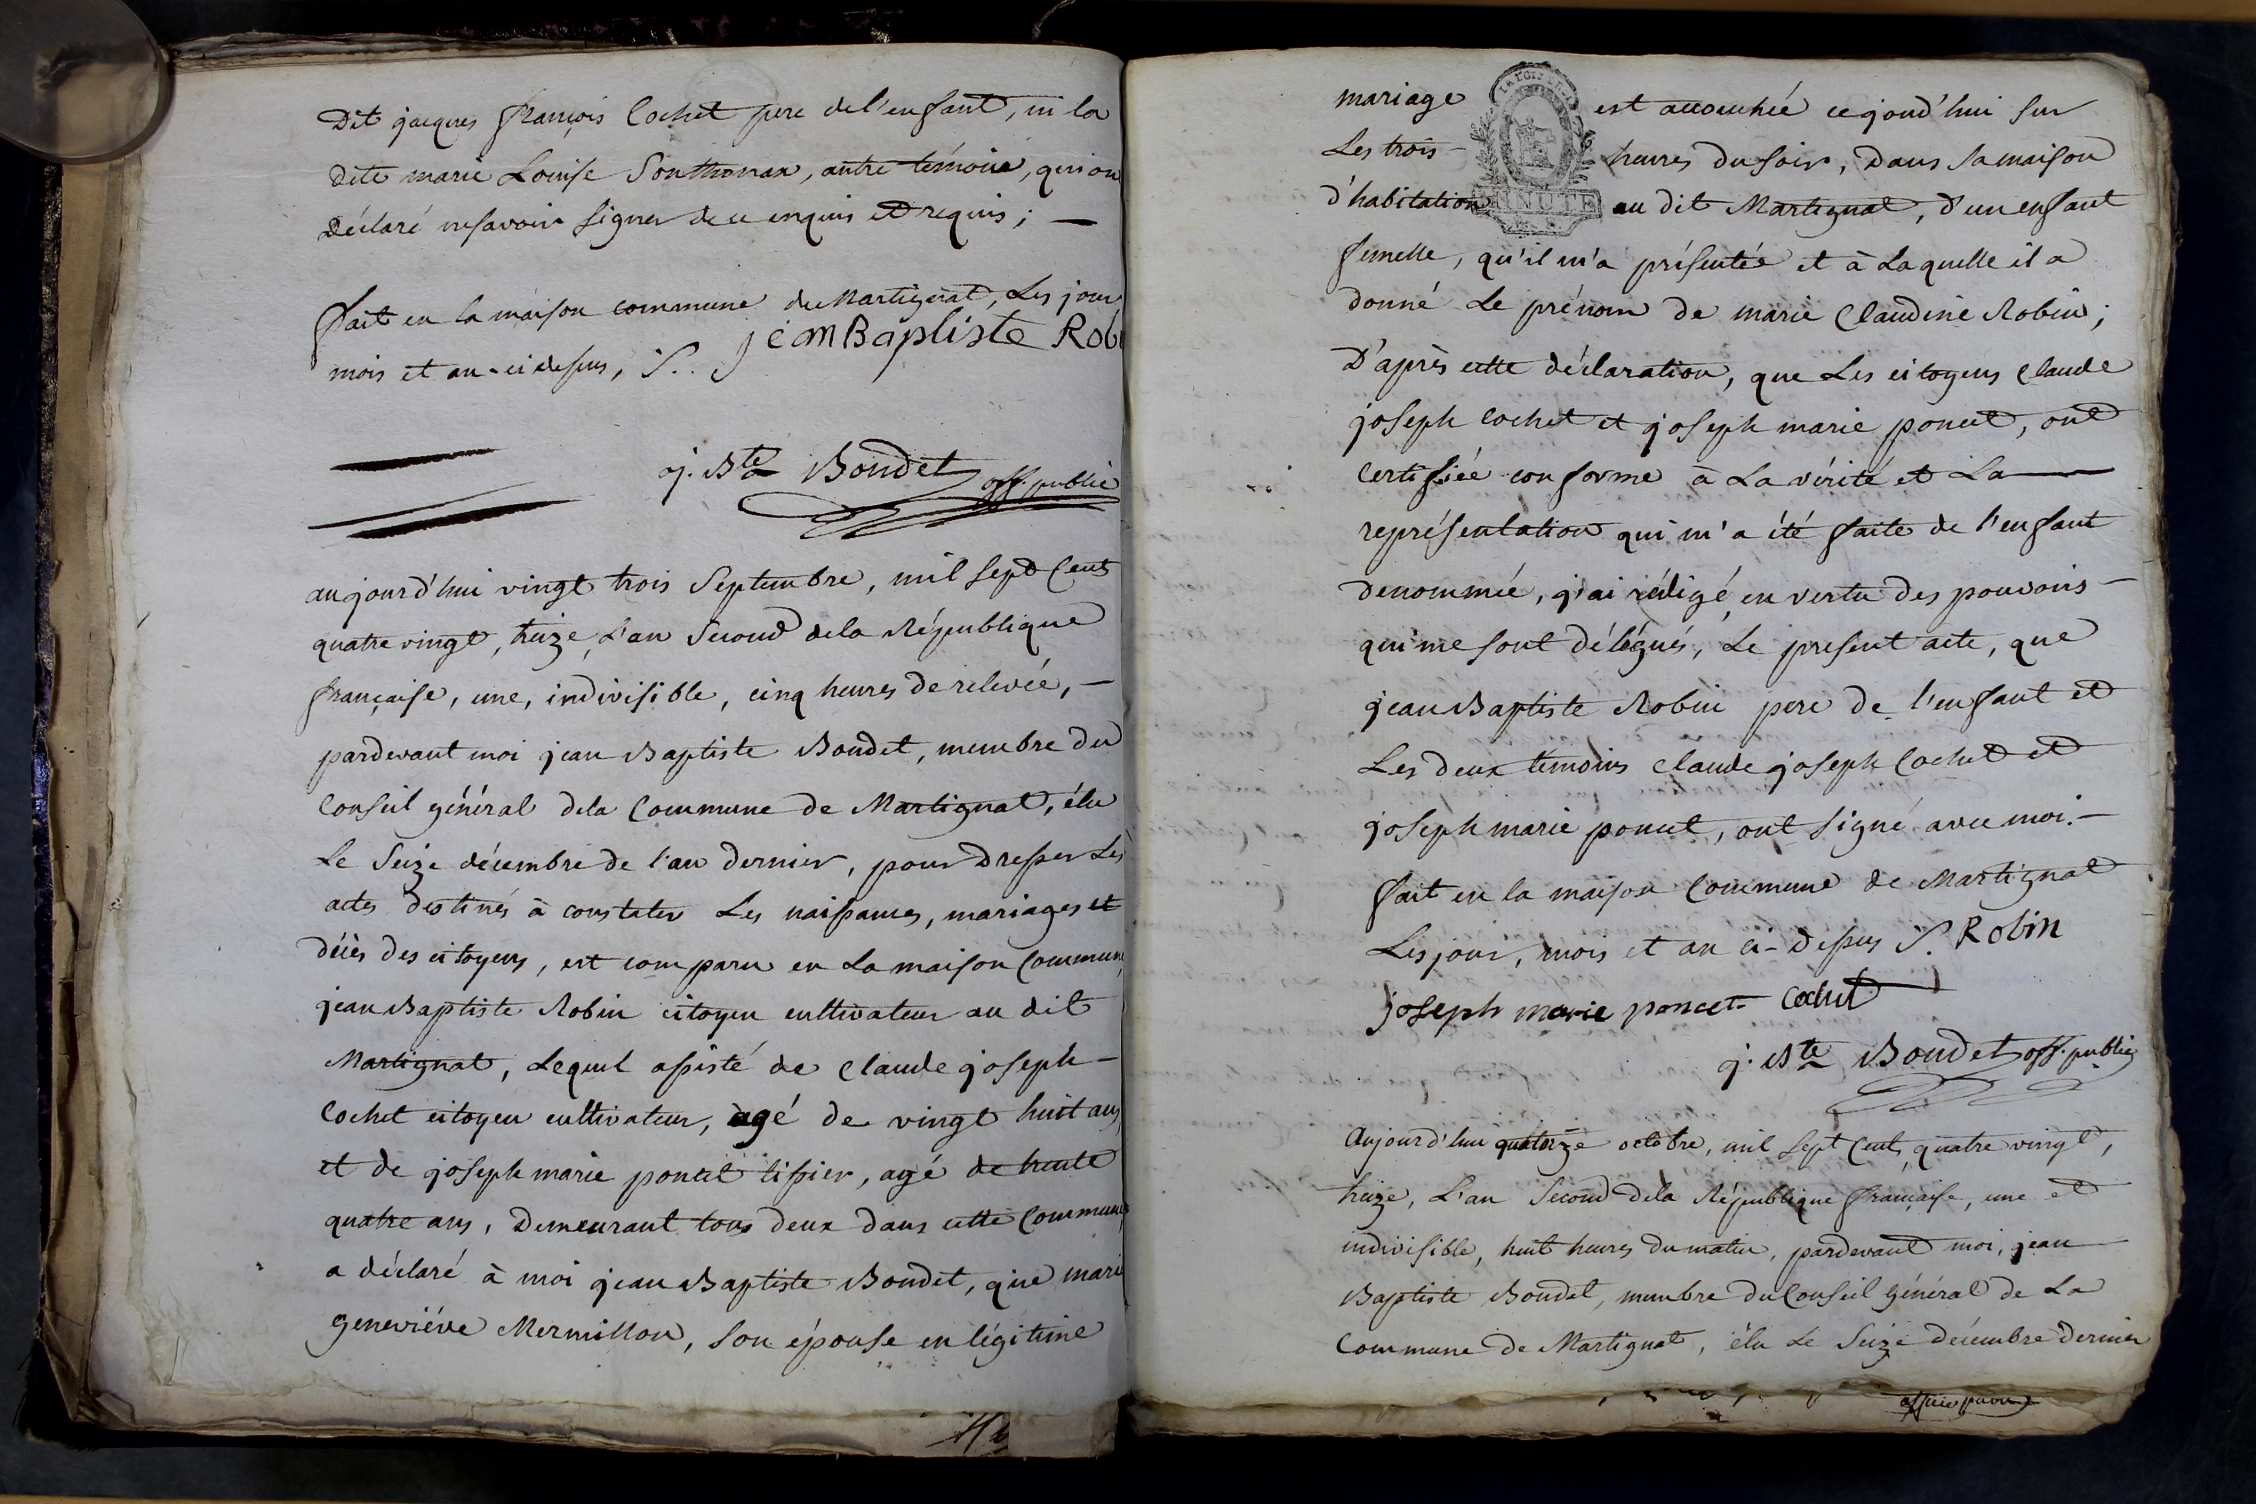 Dit jacques françois Cochet pere de l'enfant, ni la
dite marie Louise Sonthonax, autre témoin, qui on
déclaré ne savoir signer de ce enquis et requis ; —
fait en la maison commune de Martignat, Les jour
mois et an ci dessus, S. jean Baptiste Robi
j. Bte Boudet off. public
aujourd'hui vingt trois Septembre, mil sept Cent
quatre vingt, treize, L'an Second de la République
française, une, indivisible, cinq heures de relevée, —
pardevant moi jean Baptiste Boudet, membre du
Conseil général de la Commune de Martignat, élu
Le Seize décembre de l'an dernier, pour dresser Les
actes destinés à constater Les naissances, mariages et
décès des citoyens, est comparu en La maison Commune
jean Baptiste Robin citoyen cultivateur au dit
Martignat, Lequel assisté de Claude joseph —
Cochet citoyen cultivateur, agé de vingt huit ans,
et de joseph marie poncet tissier, agé de trente
quatre ans, Demeurant tous deux dans cette Commune
a déclaré à moi jean Baptiste Boudet, que mari
geneviéve Mermillon, son épouse en légitime
mariage est accouchée cejourd'hui sur
Les trois — heures du soir, dans sa maison
d'habitation au dit Martignat, d'un enfant
MINUTE
femelle, qu'il m'a présentée et à Laquelle il a
donné Le prénom de marie Claudine Robin ;
D'après cette déclaration, que Les citoyens Claude
joseph Cochet et joseph marie poncet, ont
Certifiée conforme à La vérité et La —
représentation qui m'a été faite de l'enfant
denommée, j'ai rédigé en vertu des pouvoirs —
qui me sont délégués, Le present acte, que
jean Baptiste Robin pere de l'enfant et
Les deux temoins Claude joseph Cochet et
joseph marie poncet, ont signé avec moi. —
fait en la maison Commune de Martignat
Les jour, mois et an ci-dessus S. Robin
joseph marie poncet Cochet
j. Bte Boudet off. public
Aujourd'hui quatorze octobre, mil sept Cent, quatre vingt,
treize, L'an Second de la République française, une et
indivisible, huit heures du matin, pardevant moi, jean
Baptiste Boudet, membre du Conseil général de La
Commune de Martignat, élu Le Seize décembre dernier